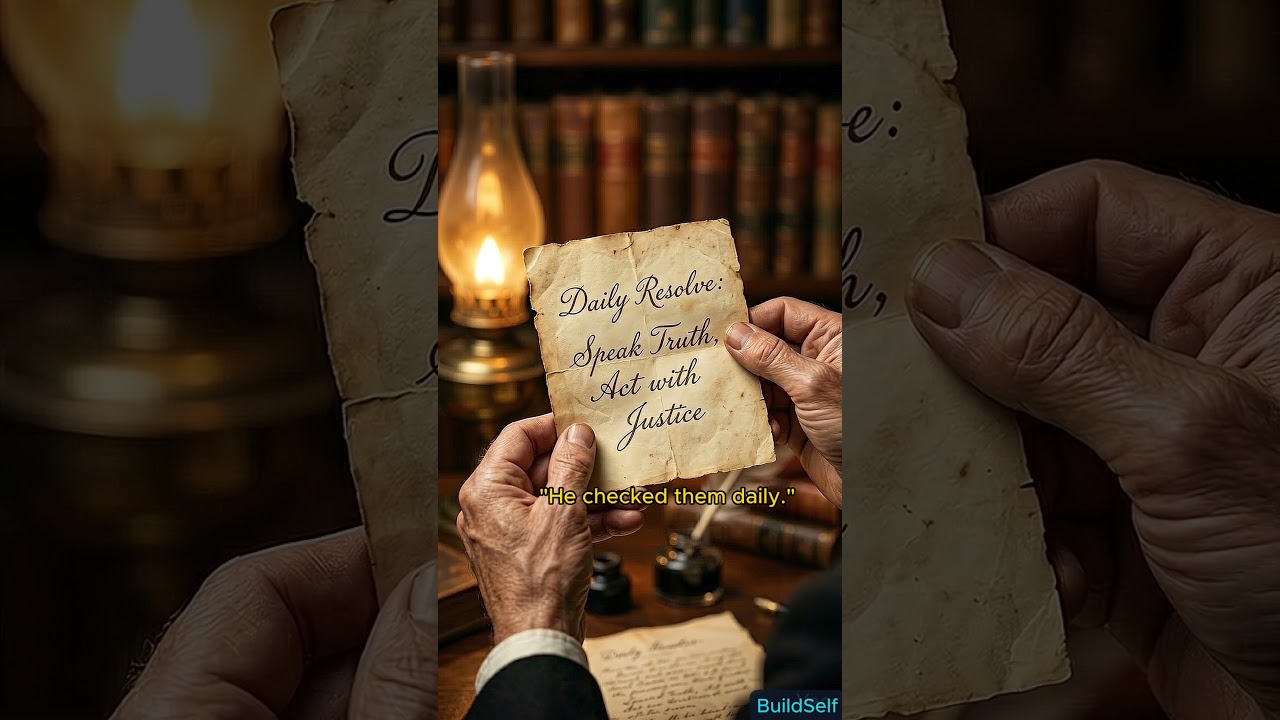 Daily Resolve:
Speak Truth,
Act with
Justice
"He checked them daily."
BuildSelf